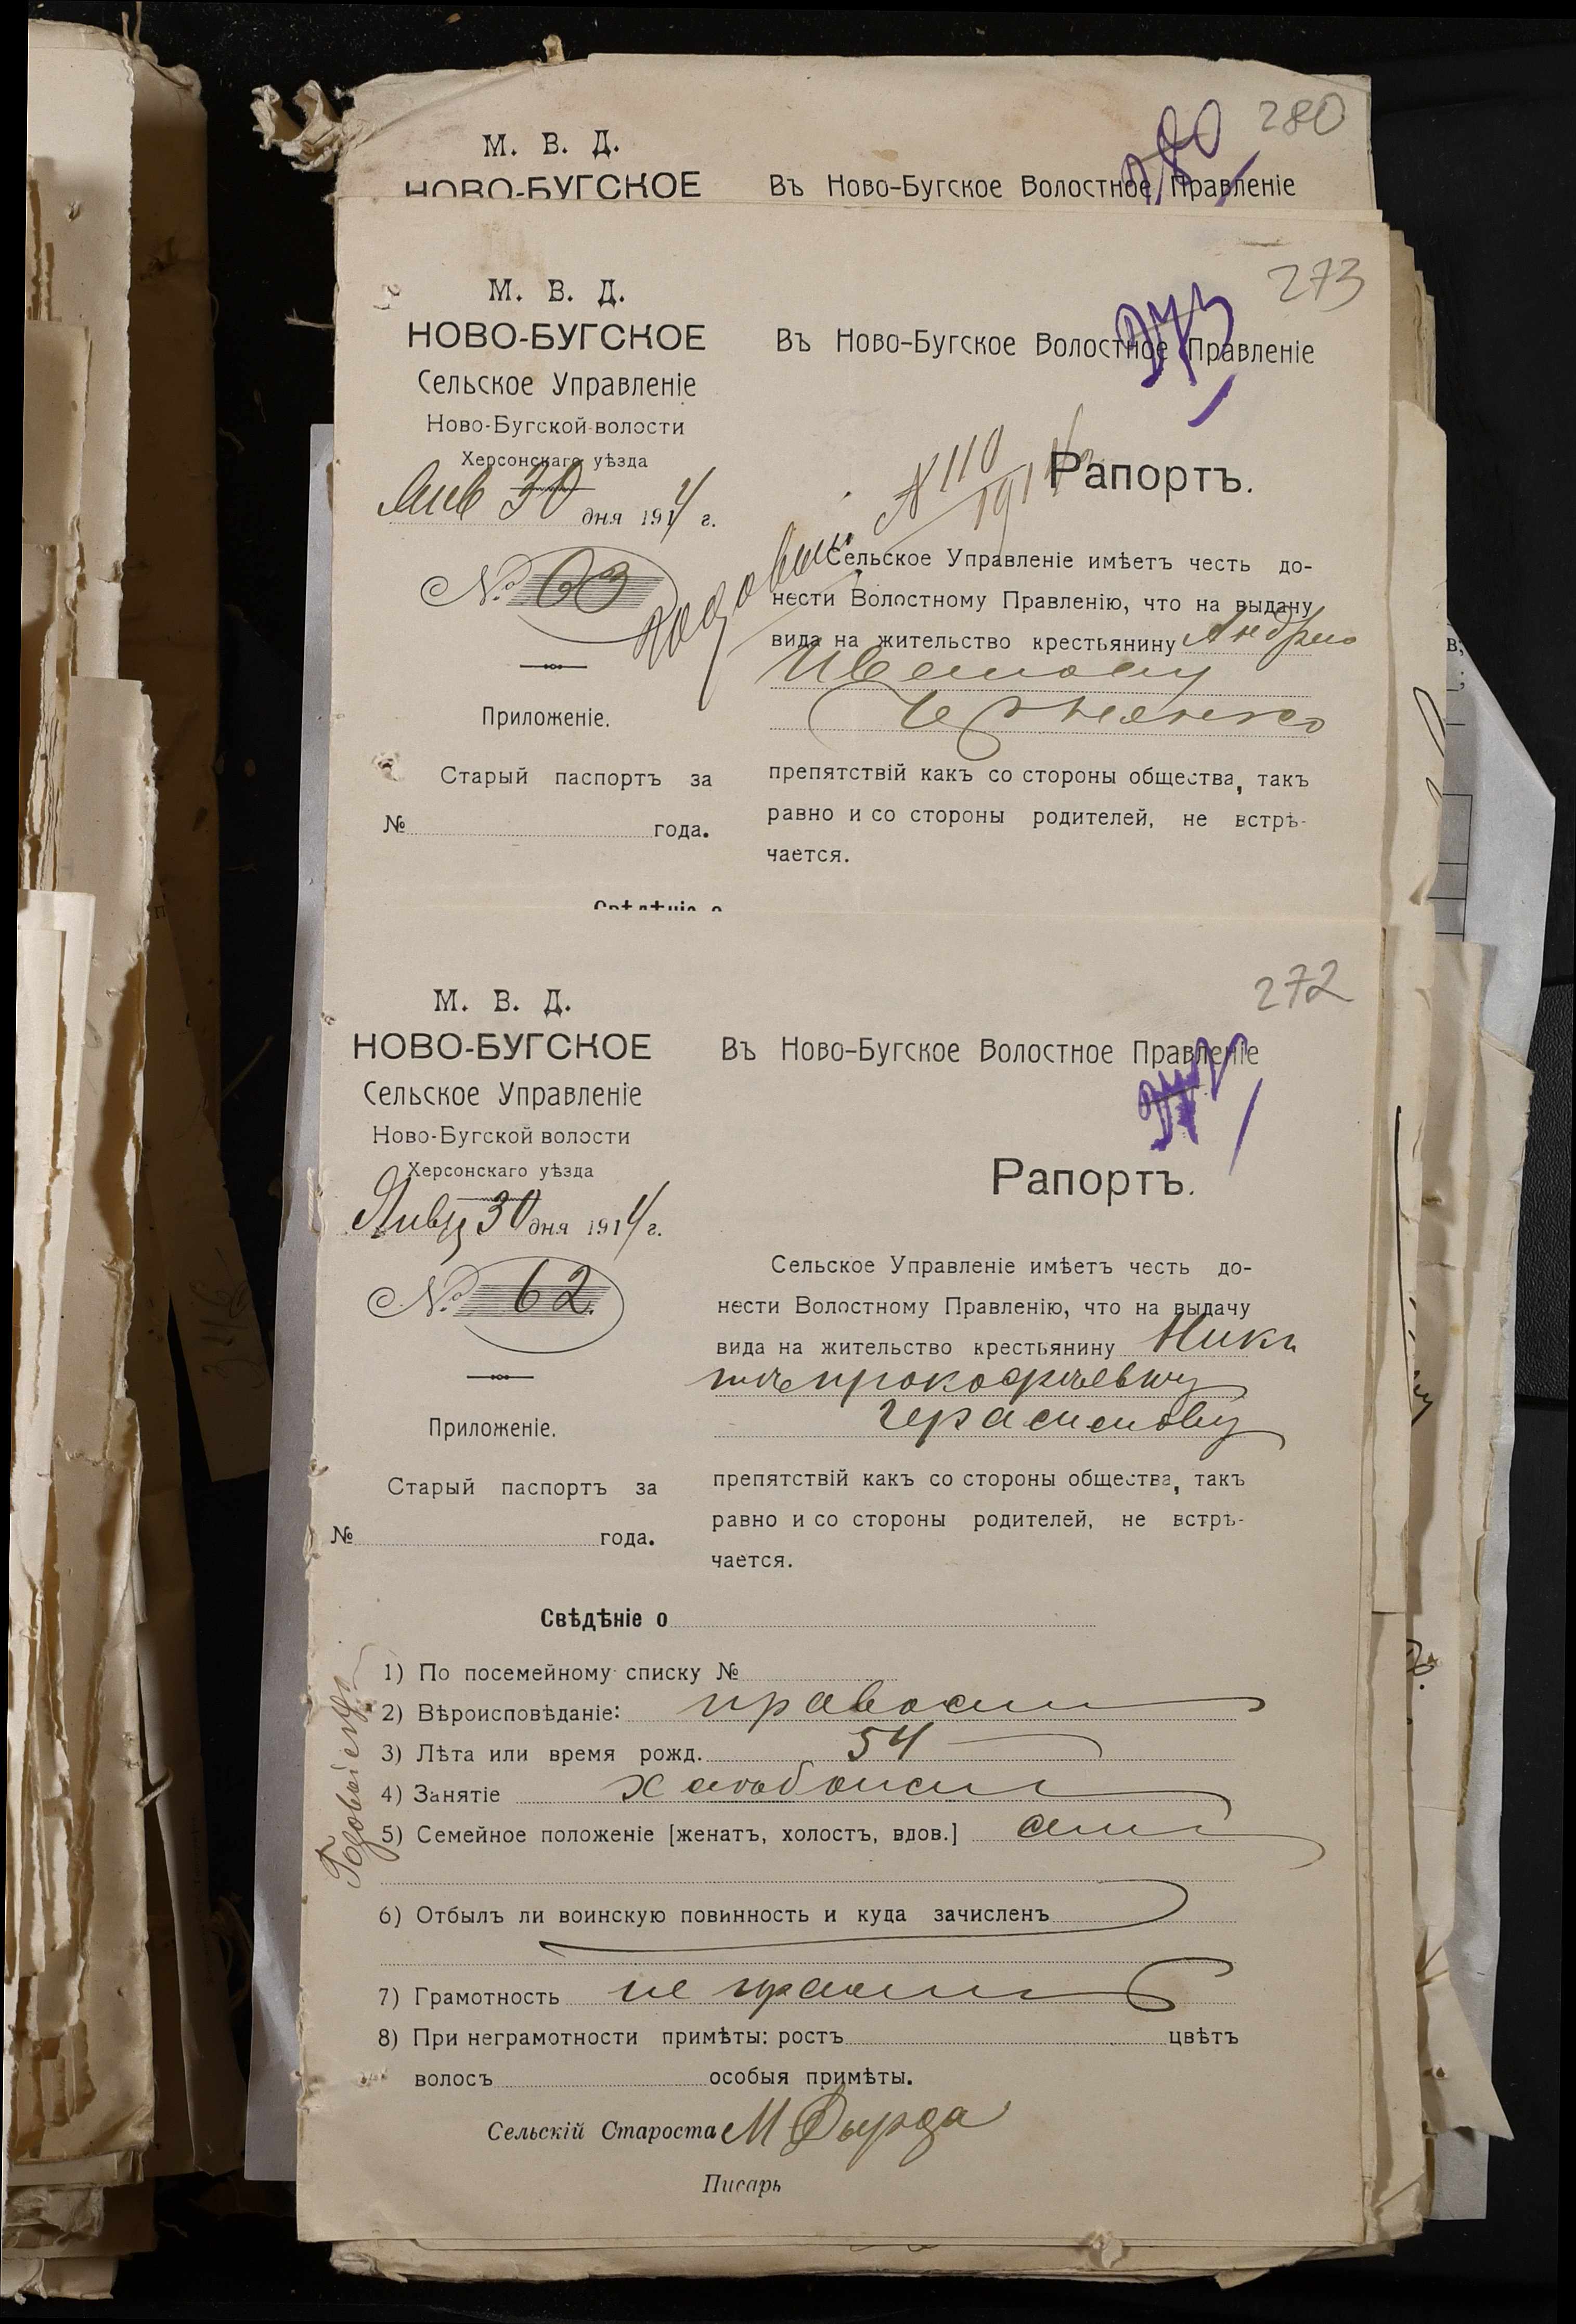 280
М. В. Д.
НОВО-БУГСКОЕ
Въ Ново-Бугское Волостное Правленіе
273
М. В. Д.
НОВО-БУГСКОЕ
Сельское Управленіе
Ново-Бугской волости
Херсонскаго уѣзда
Янв 30 дня 1914 г.
№ 63
Приложеніе.
Старый паспортъ за
№ года.
Въ Ново-Бугское Волостное Правленіе
273
№ 110
Рапортъ.
Годовый
Сельское Управленіе имѣетъ честь до-
нести Волостному Правленію, что на выдачу
вида на жительство крестьянину Андрею
препятствій какъ со стороны общества, такъ
равно и со стороны родителей, не встрѣ-
чается.
Свѣдѣніе о
272
М. В. Д.
НОВО-БУГСКОЕ
Сельское Управленіе
Ново-Бугской волости
Херсонскаго уѣзда
Янвр 30 дня 1914 г.
№ 62.
Приложеніе.
Старый паспортъ за
№ года.
Въ Ново-Бугское Волостное Правленіе
272
Рапортъ.
Сельское Управленіе имѣетъ честь до-
нести Волостному Правленію, что на выдачу
вида на жительство крестьянину Ники
тѣ Прокофьевичу
Герасимову
препятствій какъ со стороны общества, такъ
равно и со стороны родителей, не встрѣ-
чается.
Свѣдѣніе о
1) По посемейному списку №
2) Вѣроисповѣданіе: правосл
3) Лѣта или время рожд. 54
4) Занятіе хлѣбопаш
5) Семейное положеніе [женатъ, холостъ, вдов.]
6) Отбылъ ли воинскую повинность и куда зачисленъ
7) Грамотность не грам
8) При неграмотности примѣты: ростъ цвѣтъ
волосъ особыя примѣты.
Сельскій Староста М Дырда
Писарь
Годовый